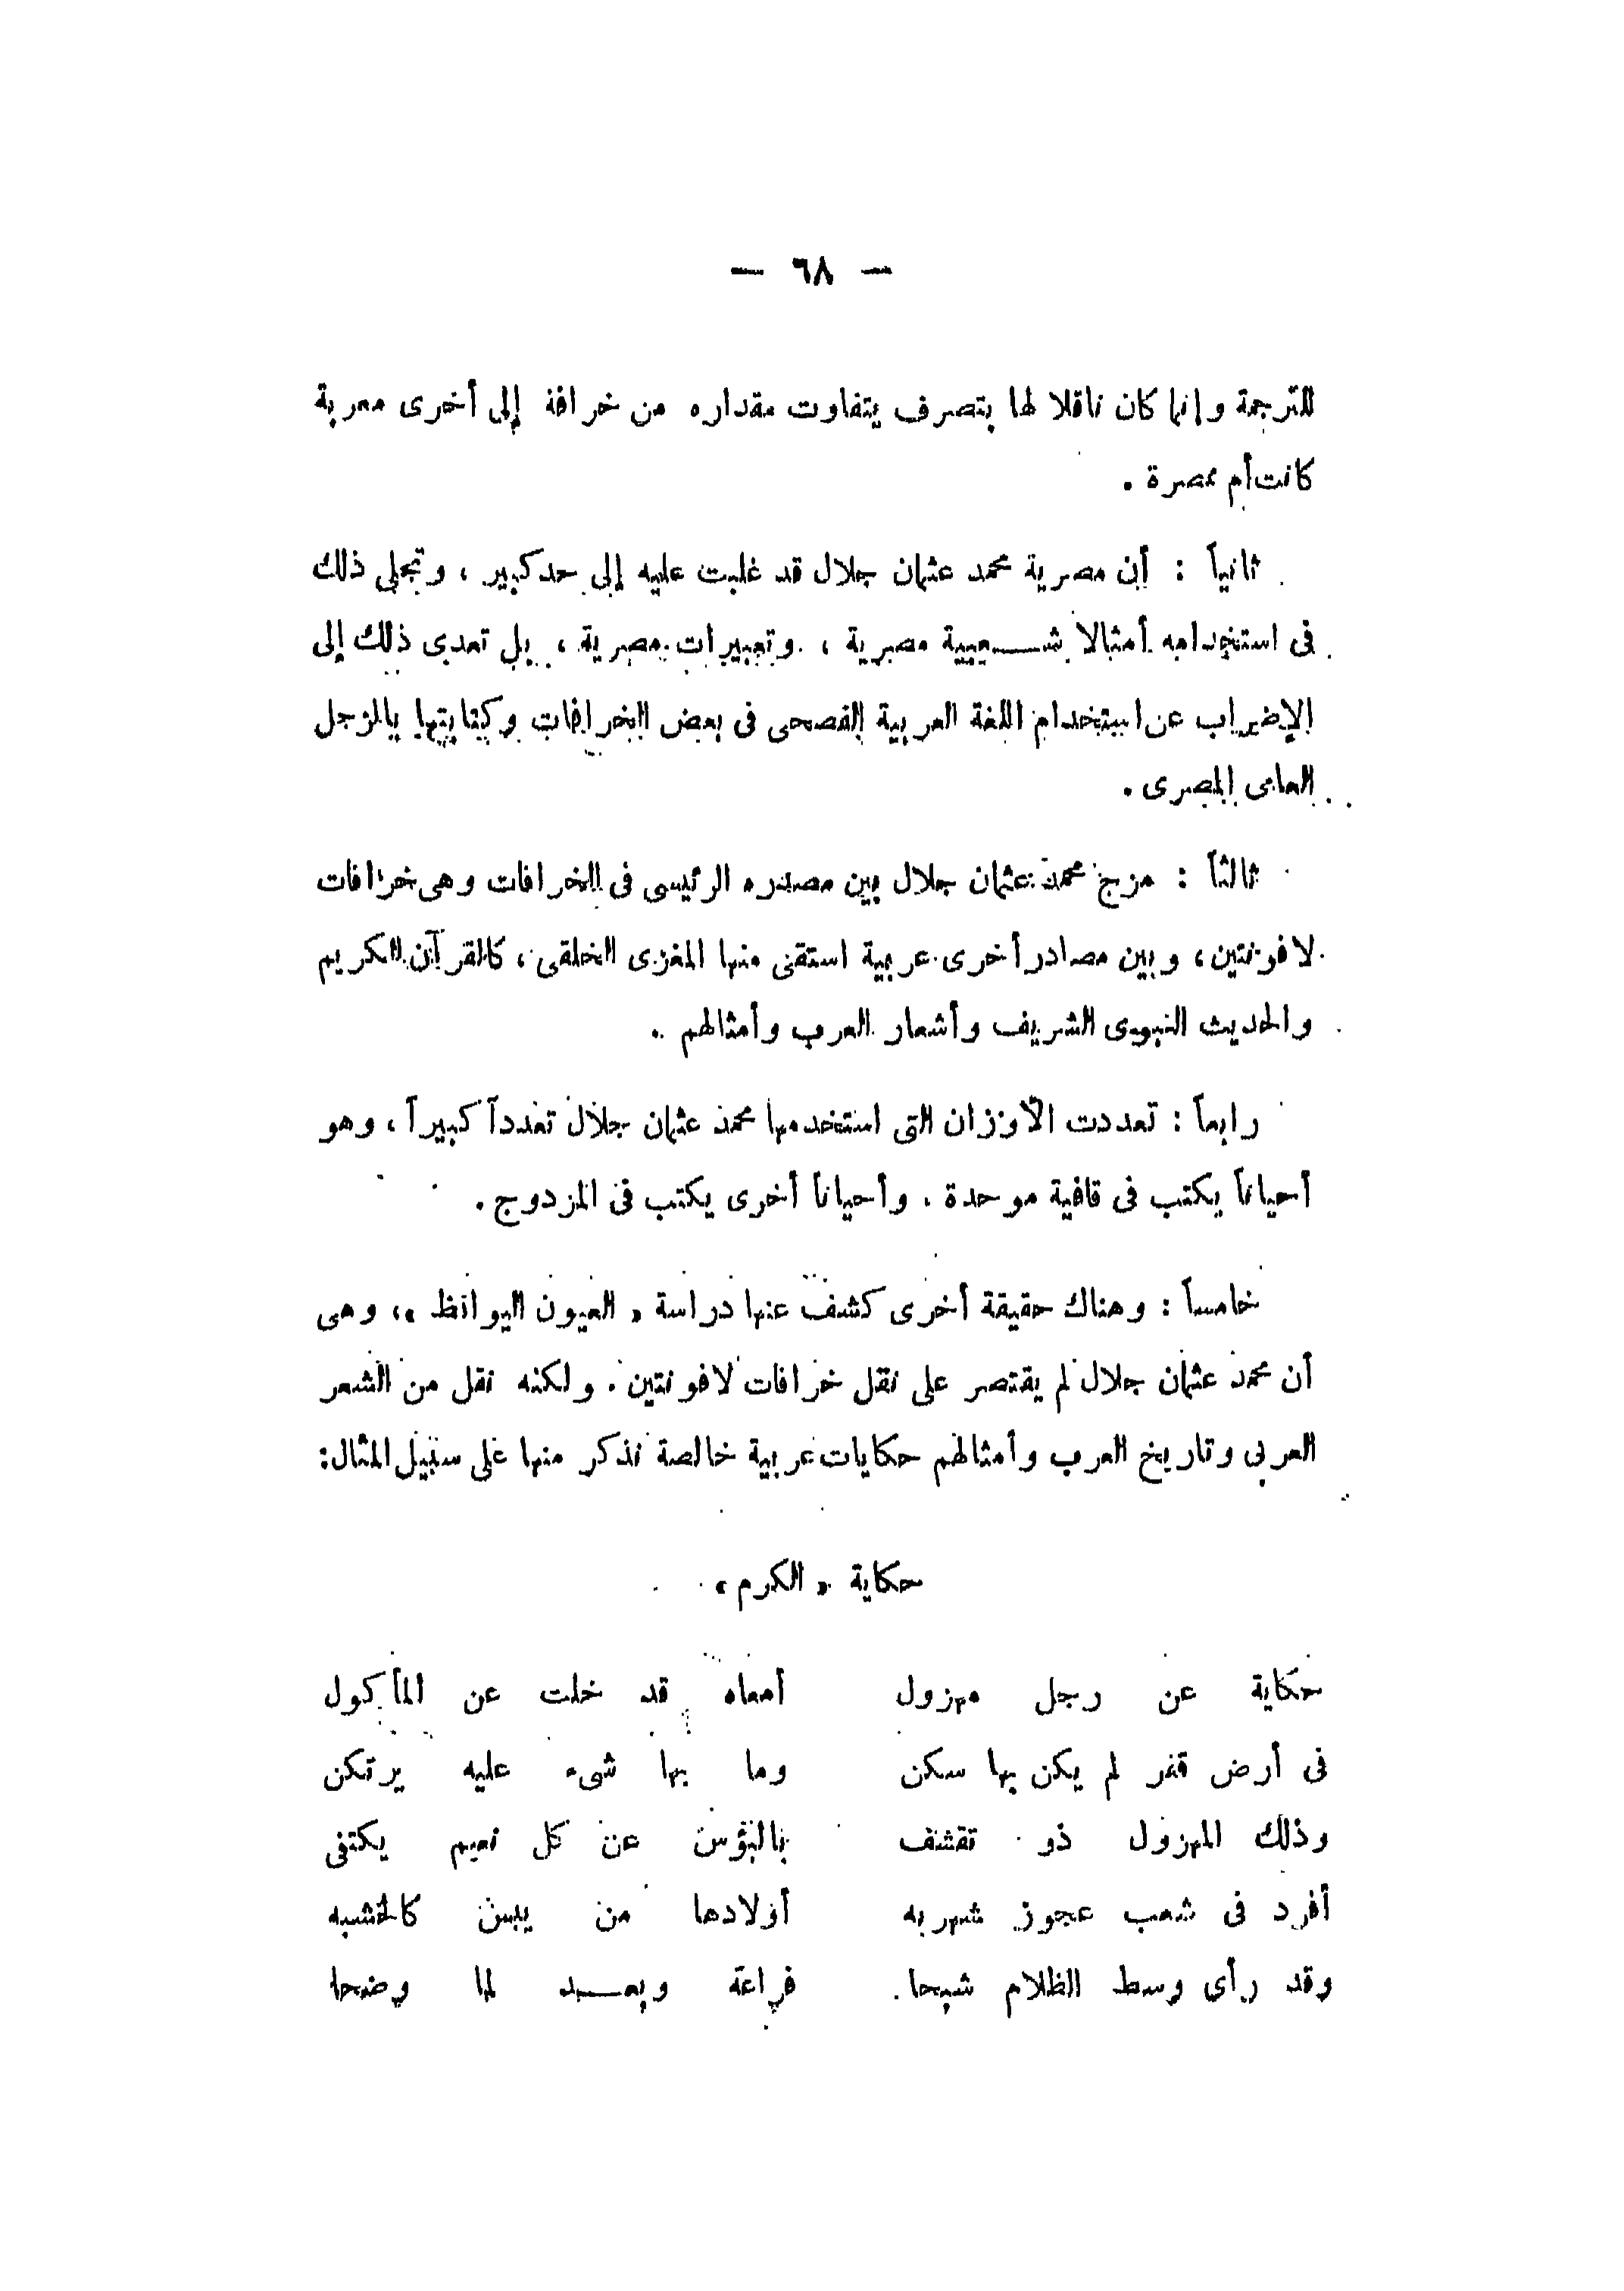 — ٦٨ —
للترجمة وإنما كان ناقلا لها بتصرف يتفاوت مقداره من خرافة إلى أخرى معربة
كانت أم ممصرة .
ثانياً : أن مصرية محمد عثمان جلال قد غلبت عليه إلى حد كبير ، وتجلى ذلك
فى استخدامه أمثالا شعبية مصرية ، وتعبيرات مصرية ، بل تعدى ذلك إلى
الإضراب عن استخدام اللغة العربية الفصحى فى بعض الخرافات وكتابتها بالزجل
العامى المصرى .
ثالثاً : مزج محمد عثمان جلال بين مصدره الرئيسى فى الخرافات وهى خرافات
لافونتين ، وبين مصادر أخرى عربية استقى منها المغزى الخلقى ، كالقرآن الكريم
والحديث النبوى الشريف وأشعار العرب وأمثالهم .
رابعاً : تعددت الأوزان التى استخدمها محمد عثمان جلال تعدداً كبيراً ، وهو
أحياناً يكتب فى قافية موحدة . وأحياناً أخرى يكتب فى المزدوج .
خامساً : وهناك حقيقة أخرى كشفت عنها دراسة « العيون اليواقظ » ، وهى
أن محمد عثمان جلال لم يقتصر على نقل خرافات لافونتين . ولكنه نقل من الشعر
العربى وتاريخ العرب وأمثالهم حكايات عربية خالصة نذكر منها على سبيل المثال :
حكاية « الكرم »
حكاية عن رجل مهزول أمعاه قد خلت عن المأكول
فى أرض قفر لم يكن بها سكن وما بها شىء عليه يرتكن
وذلك المهزول ذو تقشف بالبؤس عن كل نعيم يكتفى
أفرد فى شعب عجوز شهربه أولادها من يبس كالخشبه
وقد رأى وسط الظلام شبحا فراعه وبعد لما وضحا